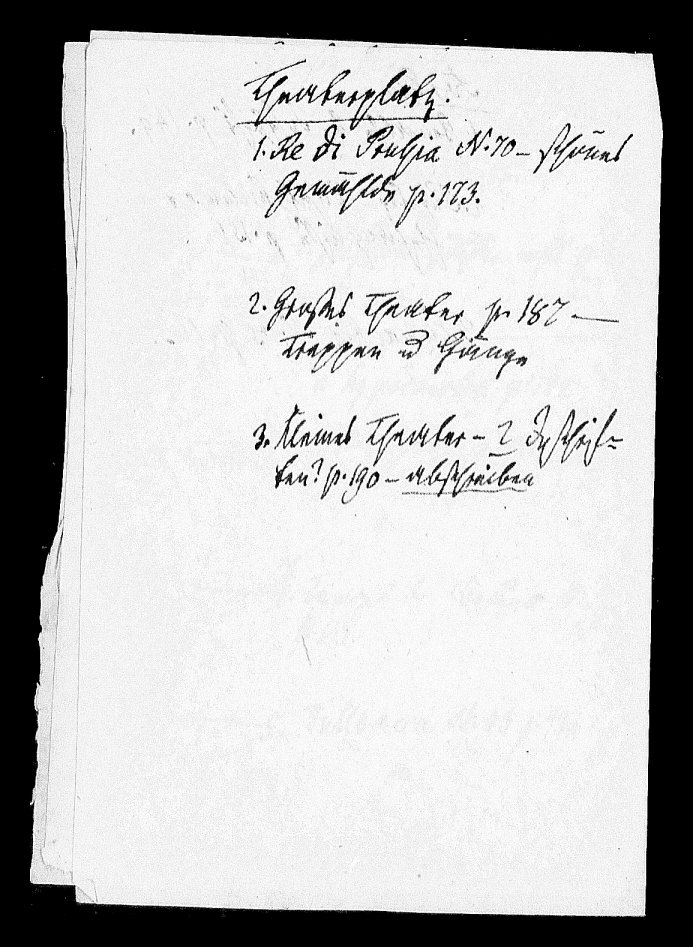 Theaterplatz.
1. Re di Prussia N. 70 – schönes
Gemählde p. 173.
2. Großes Theater p. 187 —
Treppen ud Gänge
3. Kleines Theater – 2 Inschrif-
ten? p. 190 – abschreiben